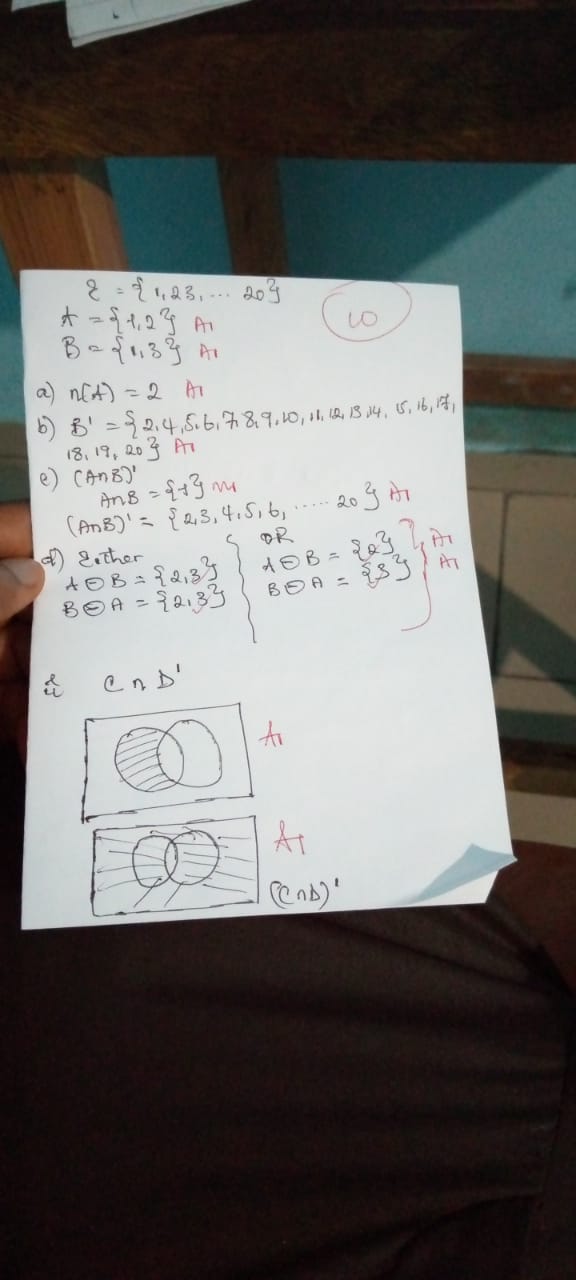 ε = {1,23, ... 20}
10
A = {1,2} A1
B = {1,3} A1
a) n(A) = 2 A1
b) B' = {2,4,5,6,7,8,9,10,11,12,13,14, 15,16,17,
18,19,20} A1
c) (A∩B)'
A∩B = {1} M1
(A∩B)' = {2,3,4,5,6, ..... 20} A1
d) Either
A ⊖ B = {2,3}
B ⊖ A = {2,3}
OR
A ⊖ B = {2} A1
B ⊖ A = {3} A1
C ∩ D'
A1
A1
(C∩D)'